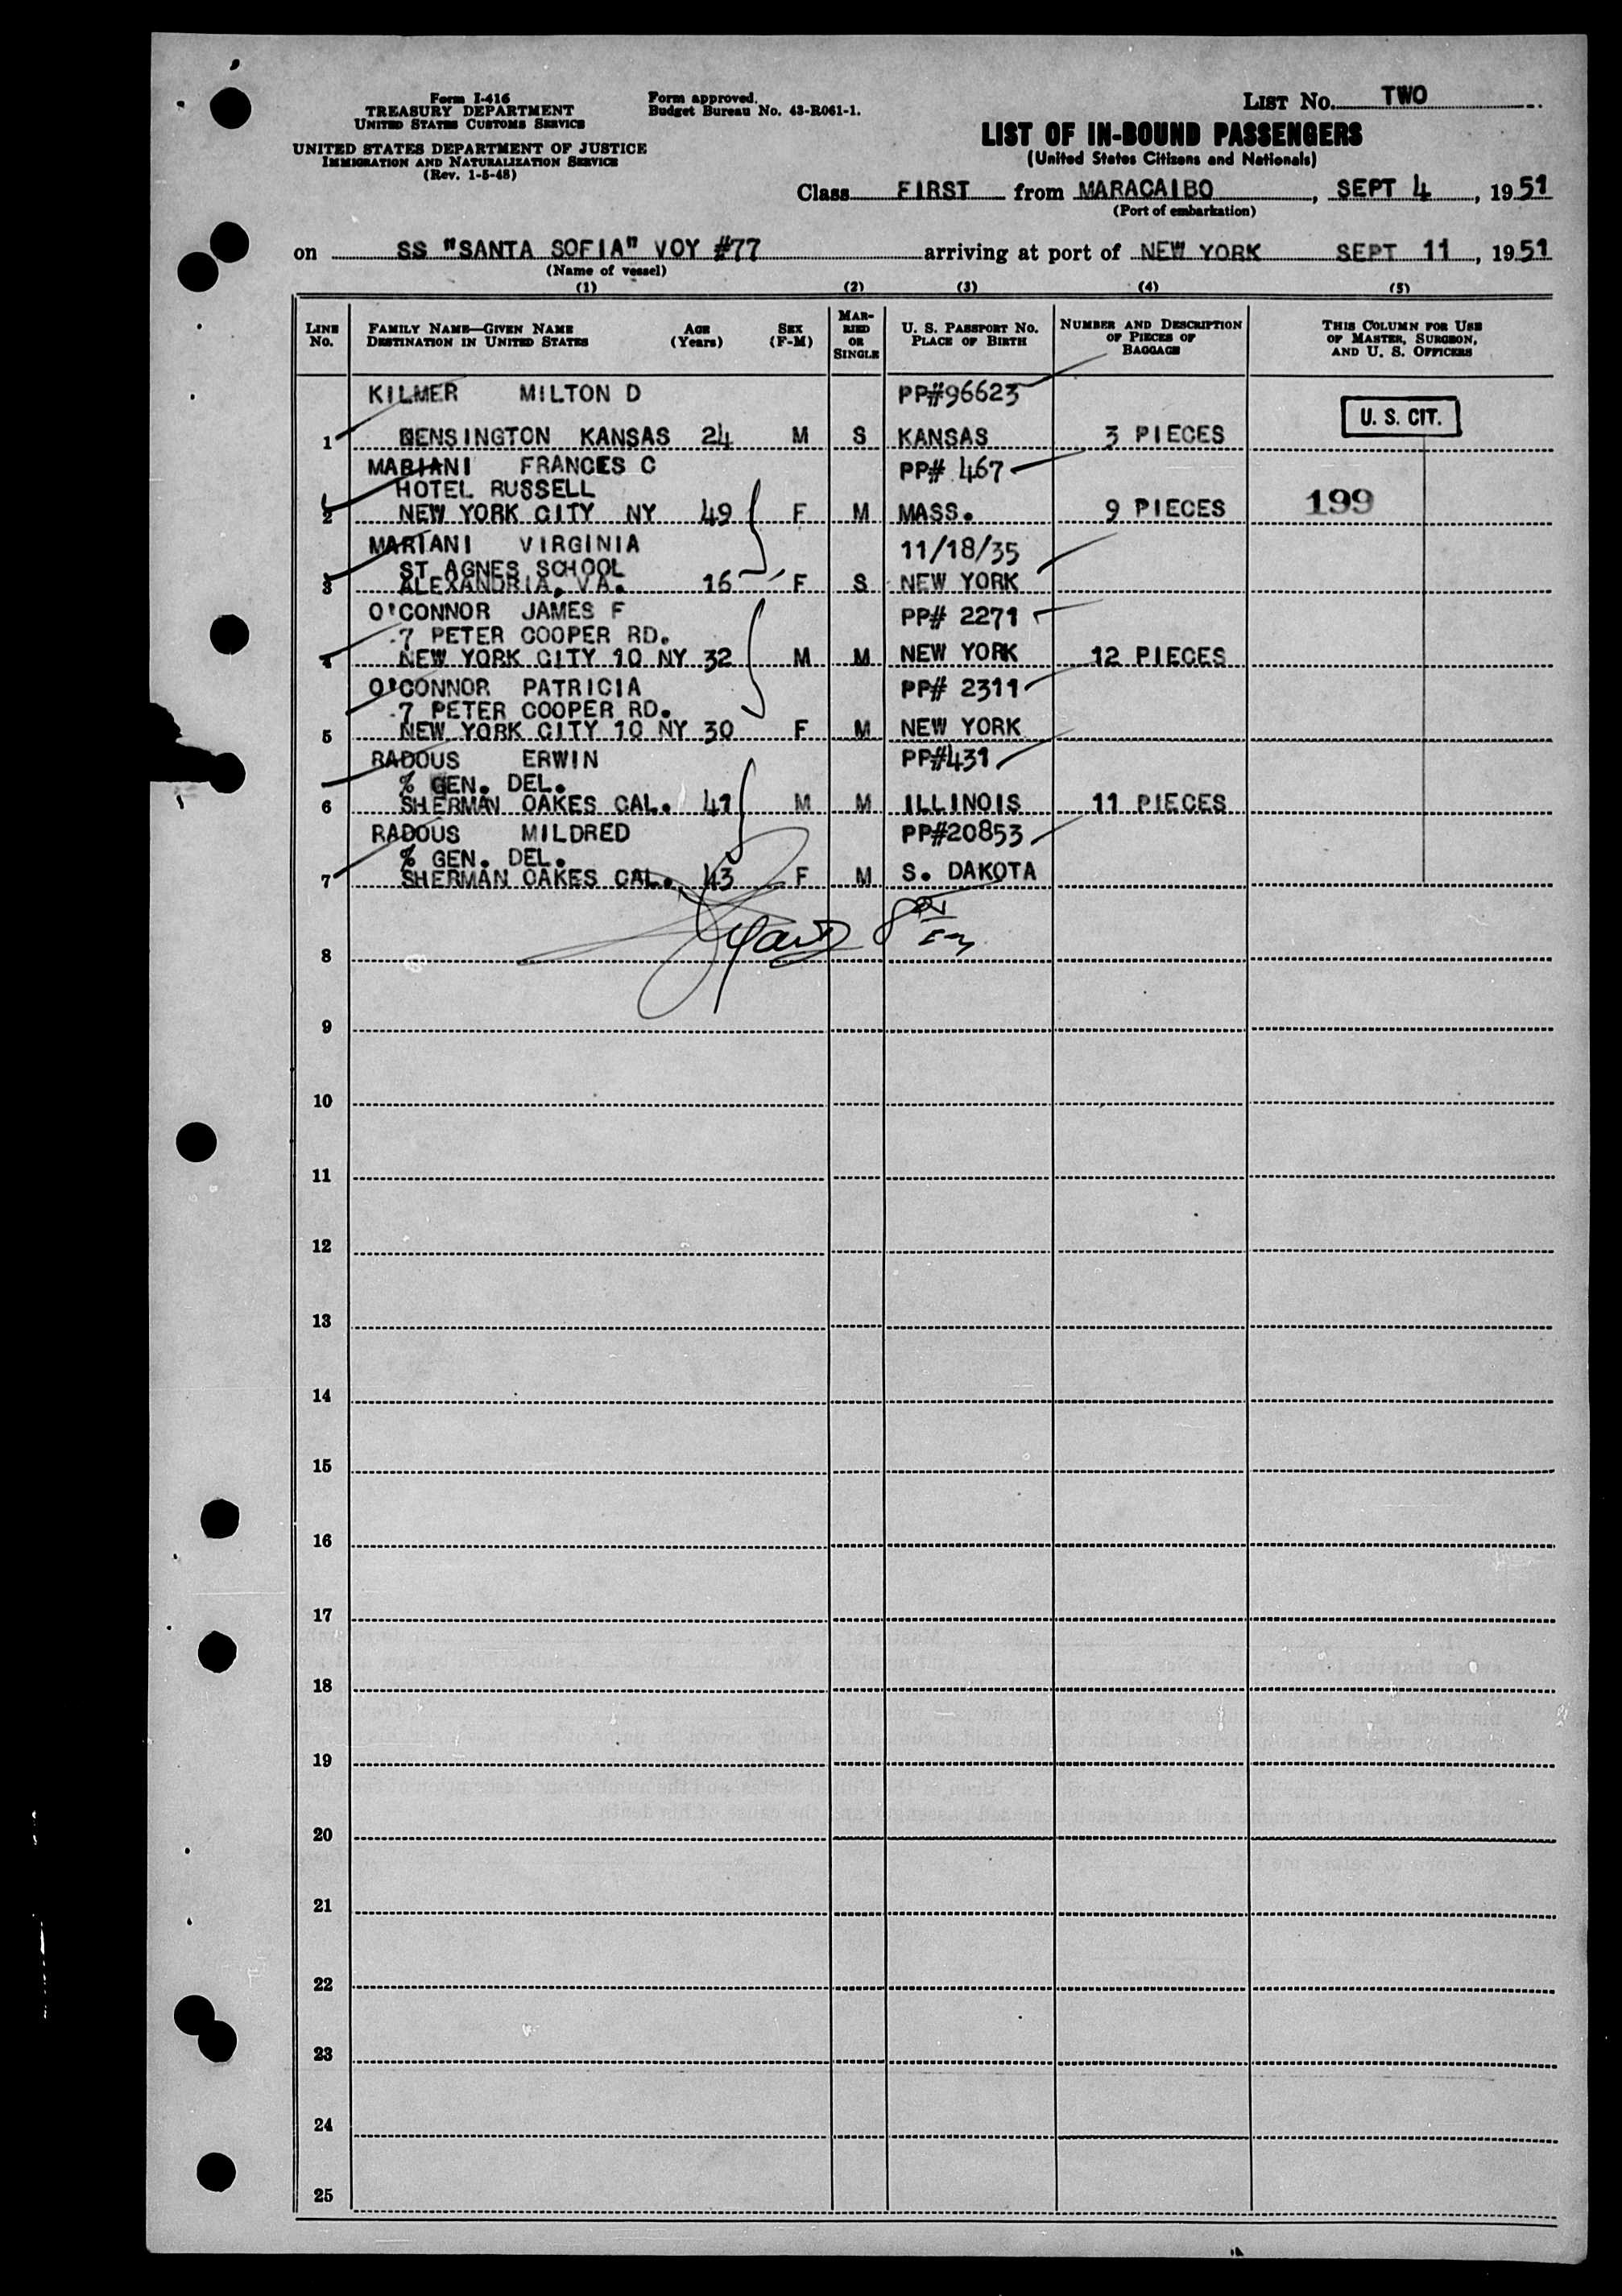 Form I-416
TREASURY DEPARTMENT
UNITED STATES CUSTOMS SERVICE
UNITED STATES DEPARTMENT OF JUSTICE
IMMIGRATION AND NATURALIZATION SERVICE
(Rev. 1-5-48)
Form approved.
Budget Bureau No. 43-R061-1.
LIST No. TWO
LIST OF IN-BOUND PASSENGERS
(United States Citizens and Nationals)
Class FIRST from MARACAIBO, SEPT 4, 1951
(Port of embarkation)
on SS "SANTA SOFIA" VOY #77 arriving at port of NEW YORK SEPT 11, 1951
(Name of vessel)
(1) (2) (3) (4) (5)
LINE No. FAMILY NAME—GIVEN NAME DESTINATION IN UNITED STATES AGE (Years) SEX (F-M) MARRIED OR SINGLE U. S. PASSPORT NO. PLACE OF BIRTH NUMBER AND DESCRIPTION OF PIECES OF BAGGAGE THIS COLUMN FOR USE OF MASTER, SURGEON, AND U. S. OFFICERS
KILMER MILTON D PP#96623
U. S. CIT.
1 KENSINGTON KANSAS 24 M S KANSAS 3 PIECES
MARIANI FRANCES C PP# 467
HOTEL RUSSELL
2 NEW YORK CITY NY 49 F M MASS. 9 PIECES 199
MARIANI VIRGINIA 11/18/35
ST AGNES SCHOOL
3 ALEXANDRIA, VA. 16 F S NEW YORK
O'CONNOR JAMES F PP# 2271
7 PETER COOPER RD.
4 NEW YORK CITY 10 NY 32 M M NEW YORK 12 PIECES
O'CONNOR PATRICIA PP# 2311
7 PETER COOPER RD.
5 NEW YORK CITY 10 NY 30 F M NEW YORK
RADOUS ERWIN PP#431
% GEN. DEL.
6 SHERMAN OAKES CAL. 41 M M ILLINOIS 11 PIECES
RADOUS MILDRED PP#20853
% GEN. DEL.
7 SHERMAN OAKES CAL. 43 F M S. DAKOTA
8
9
10
11
12
13
14
15
16
17
18
19
20
21
22
23
24
25